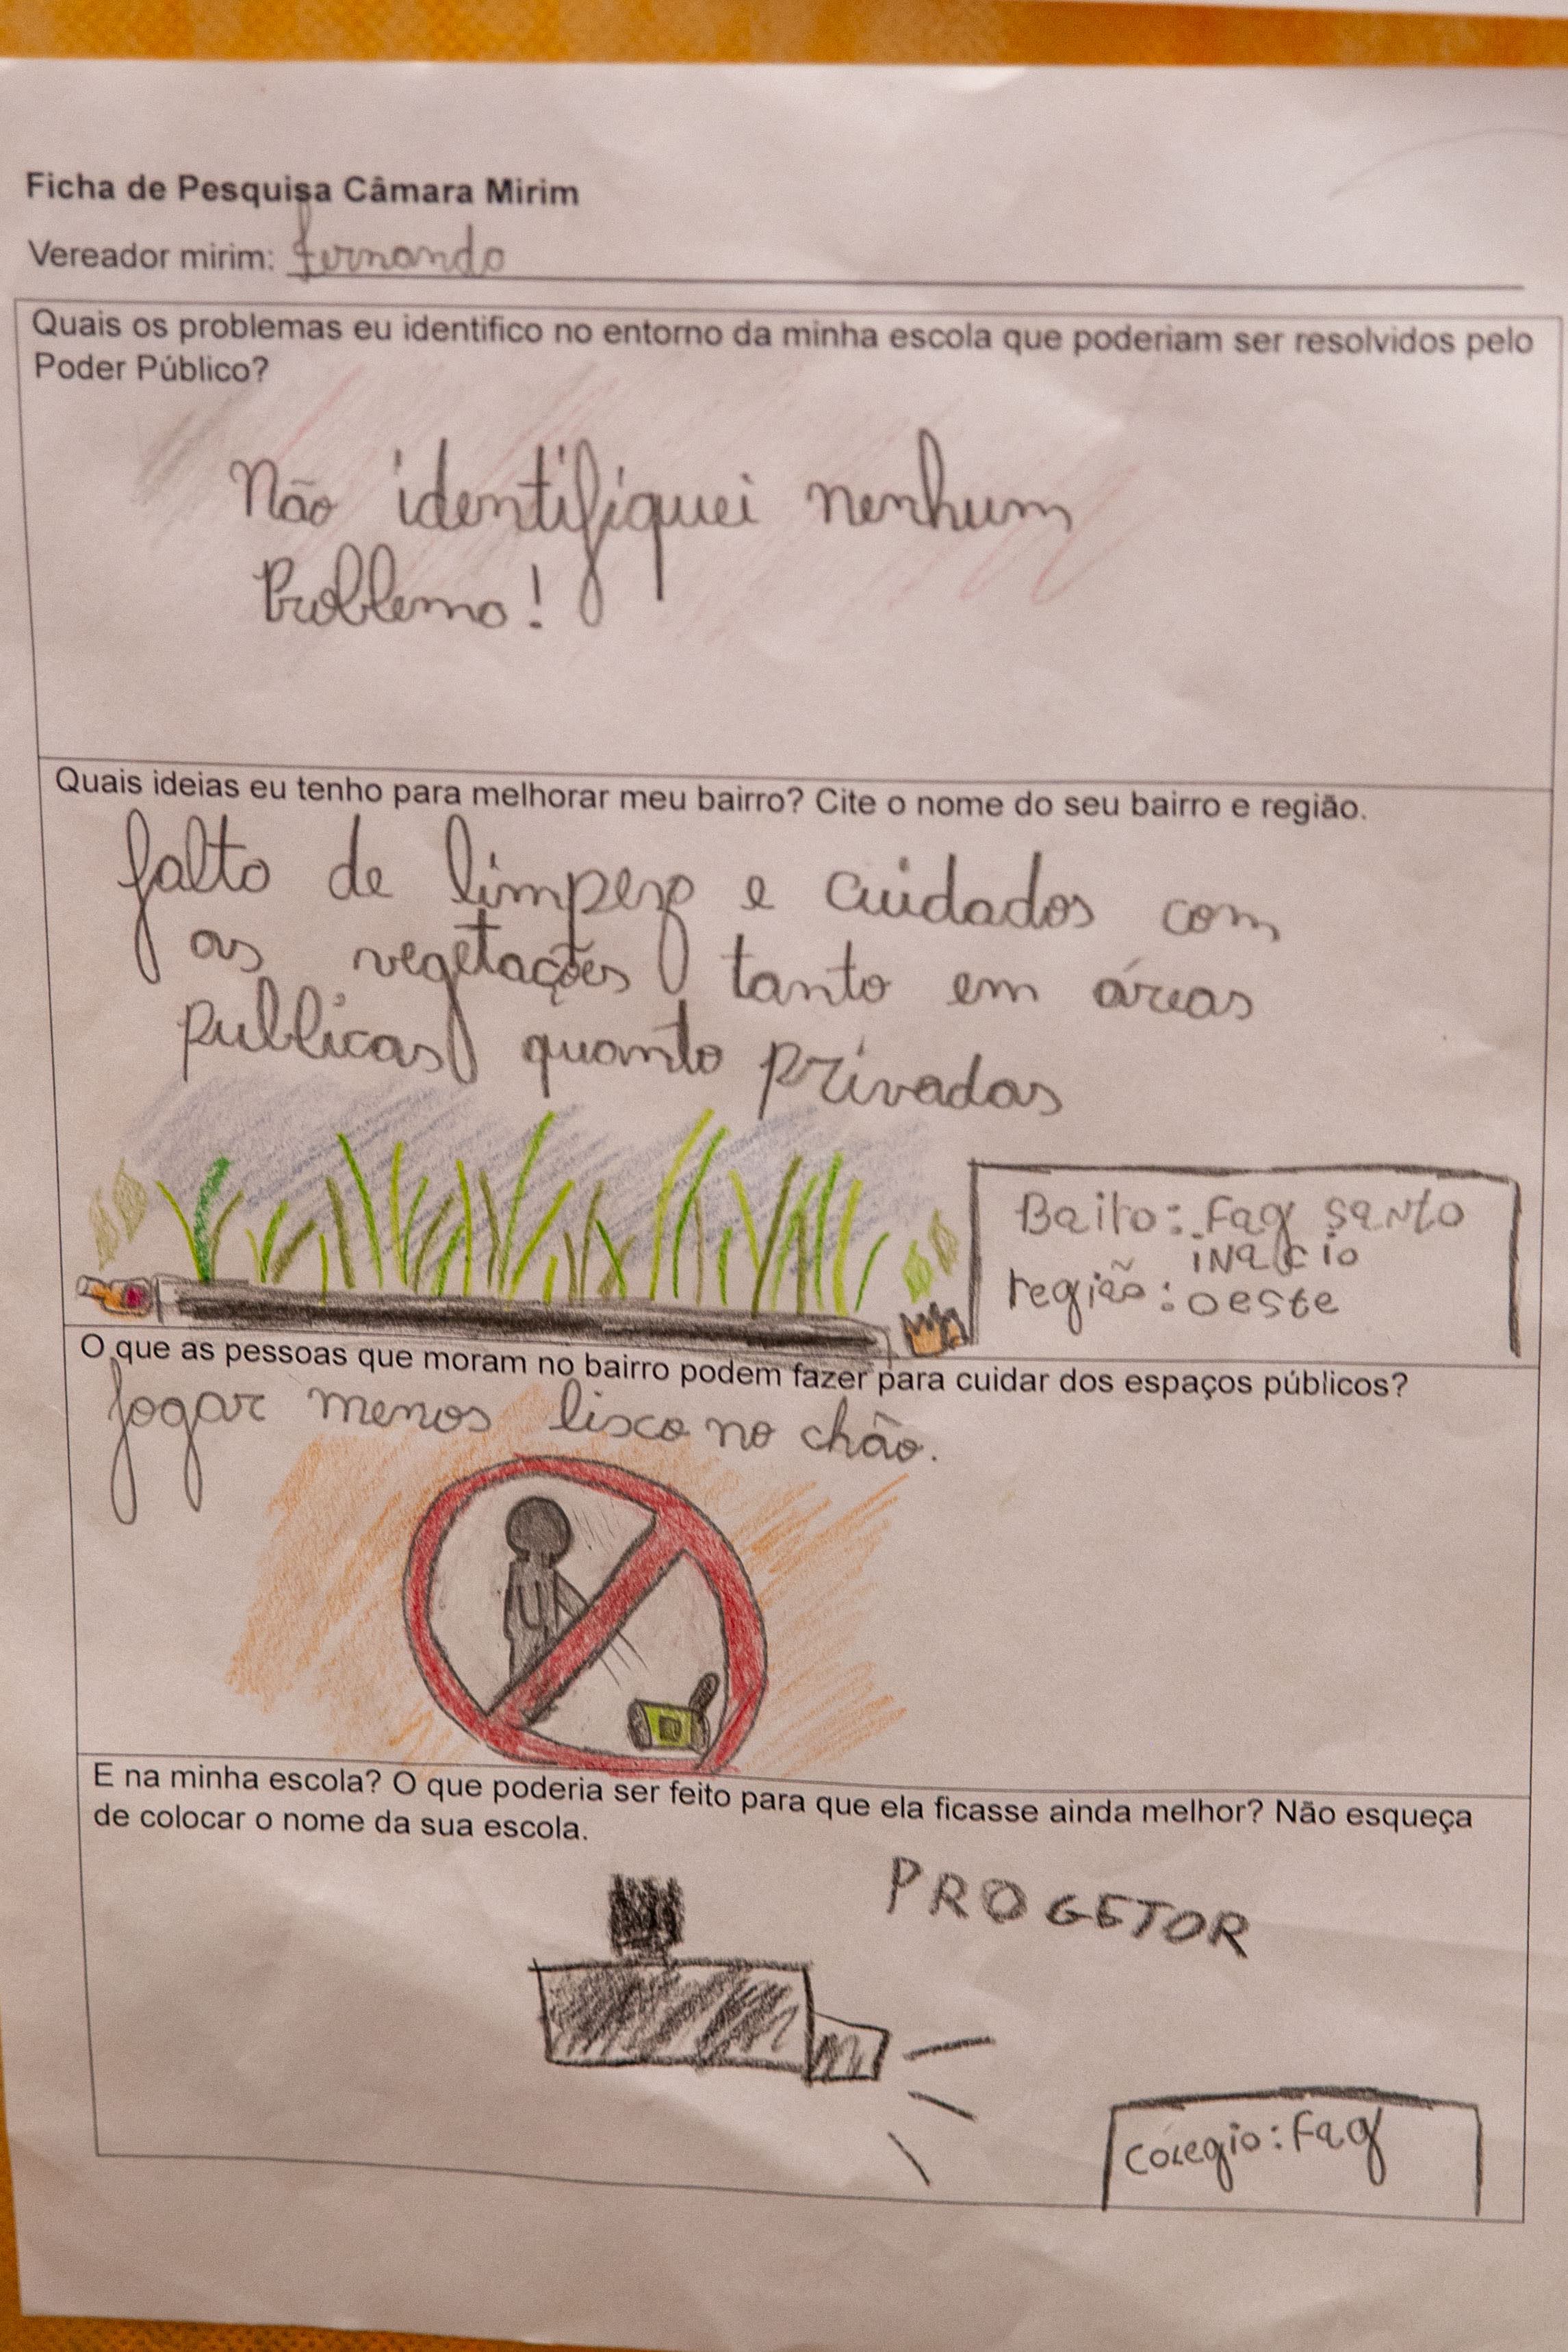 Ficha de Pesquisa Câmara Mirim
Vereador mirim: Fernando
Quais os problemas eu identifico no entorno da minha escola que poderiam ser resolvidos pelo
Poder Público?
Não identifiquei nenhum
Problema!
Quais ideias eu tenho para melhorar meu bairro? Cite o nome do seu bairro e região.
falta de limpeza e cuidados com
as vegetações tanto em áreas
publicas quanto privadas
Bairo: Fag Santo
inacio
região: oeste
O que as pessoas que moram no bairro podem fazer para cuidar dos espaços públicos?
Jogar menos lixo no chão.
E na minha escola? O que poderia ser feito para que ela ficasse ainda melhor? Não esqueça
de colocar o nome da sua escola.
PROGETOR
colegio: Fag